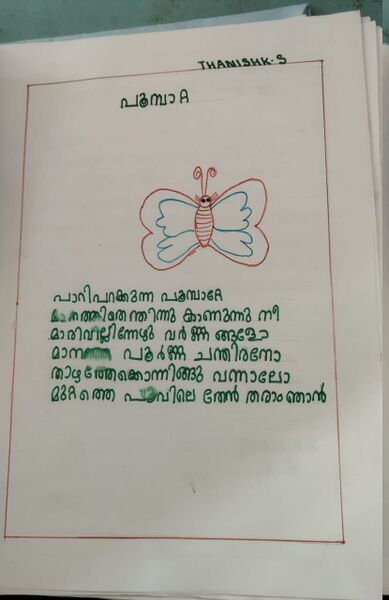 THANISHK.S
പൂമ്പാറ്റ
പാറിപറക്കുന്ന പൂമ്പാറ്റേ
മാനത്തിതെന്തിന്നു കാണുന്നു നീ
മാരിവില്ലിന്നേഴു വർണ്ണ ങ്ങളോ
മാനത്തെ പൂർണ്ണ ചന്തിരനോ
താഴത്തേക്കൊന്നിങ്ങു വന്നാലോ
മുറ്റത്തെ പൂവിലെ തേൻ തരാം ഞാൻ